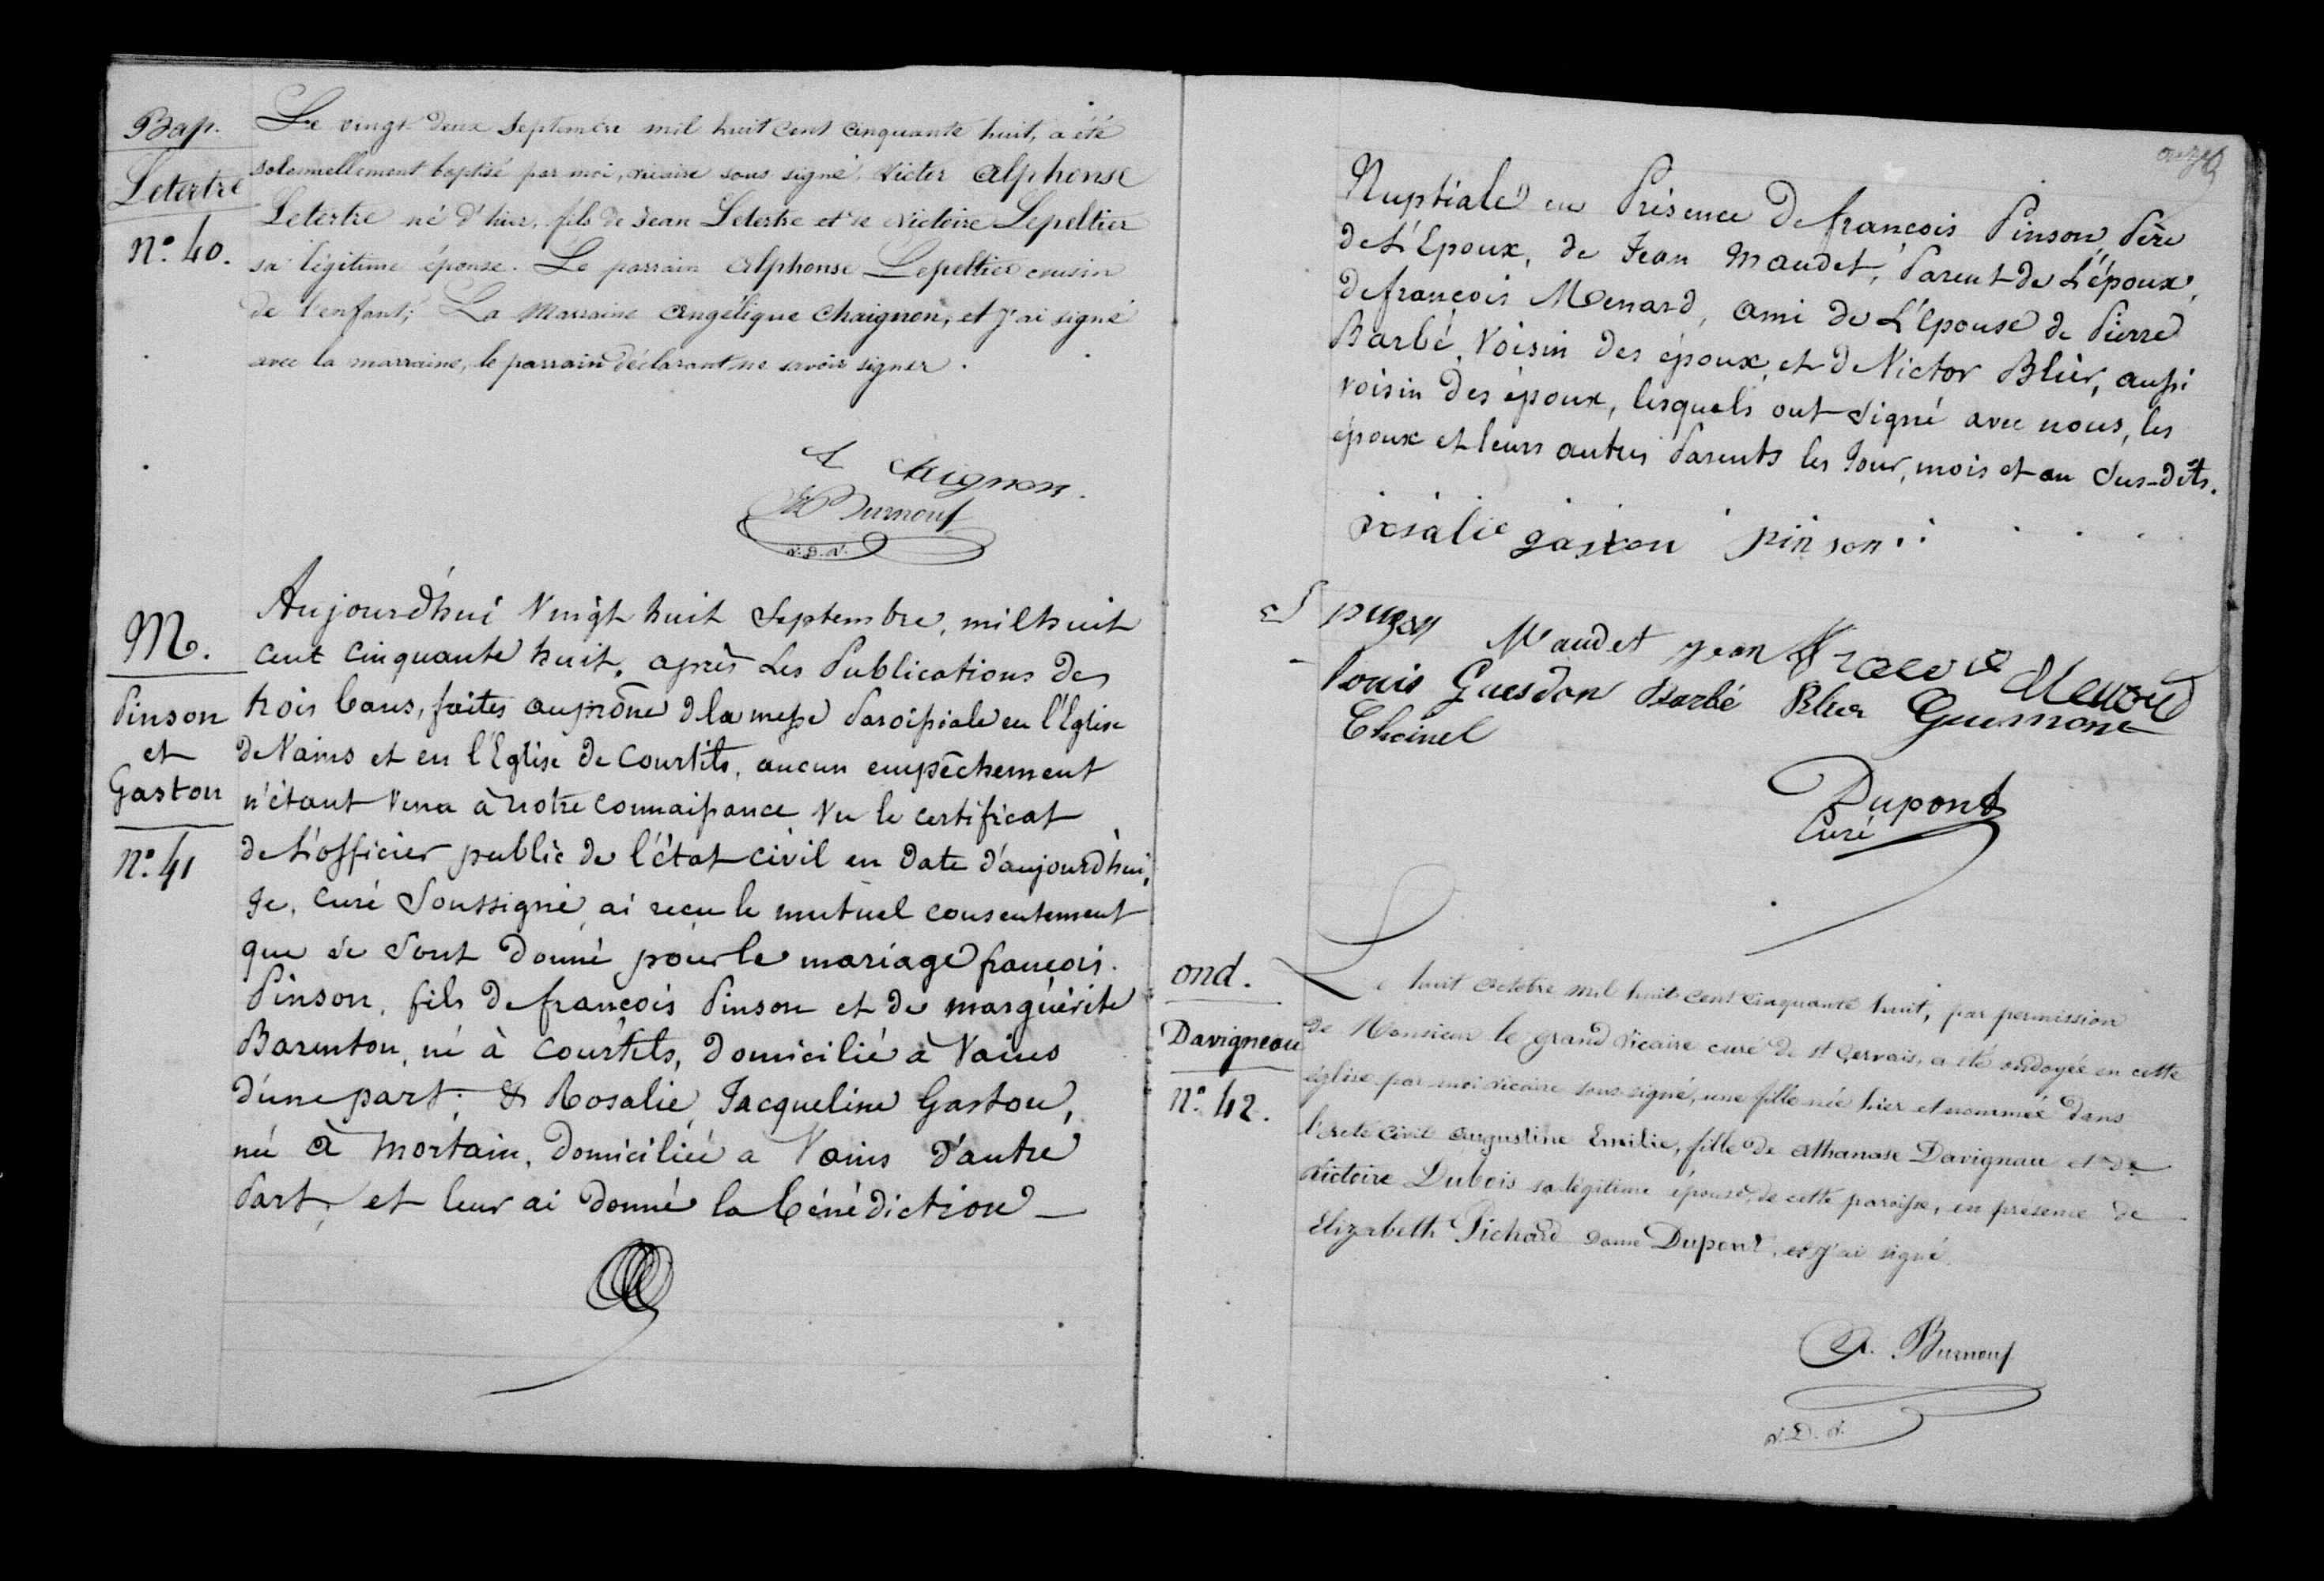 Bap.
Letertre
N.º 40.
Le vingt-deux Septembre mil huit cent cinquante huit, a été
solennellement baptisé par moi, vicaire sous signé, Victor Alphonse
Letertre né d'hier, fils de Jean Letertre et de Victoire Lepeltier
sa légitime épouse. Le parrain Alphonse Lepeltier cousin
de l'enfant; La Marraine Angélique Chaignon, et j'ai signé
avec la marraine, le parrain déclarant ne savoir signer.
A Chignon.
A Burnouf
v. D. V.
M.
Pinson
et
Gaston
N.º 41
Aujourd'hui Vingt huit Septembre, mil huit
cent cinquante huit, après Les Publications des
trois bans, faites au prône d la messe Paroissiale en l'Eglise
de Vains et en l'Eglise de Courtils, aucun empêchement
n'étant venu à notre connaissance, Vu le certificat
de L'officier public de l'état civil en date d'aujourd'hui,
Je, Curé Soussigné, ai reçu le mutuel consentement
que se sont donné pour le mariage françois
Pinson, fils de françois Pinson et de marguérite
Barenton, né à Courtils, domicilié à Vains
d'une part; & Rosalie, Jacqueline Gaston,
né à Mortain, domiciliée a Vains d'autre
Part, et leur ai donné la bénédiction
onze
Nuptiale en Présence de françois Pinson, Père
de L'Epoux, de Jean Maudet, Parent de L'époux,
de françois Menard, ami de L'épouse de Pierre
Barbé, Voisin des époux, et de Victor Blier, aussi
voisin des époux, lesquels ont signé avec nous, les
époux et leurs autres Parents les Jour, mois et an Sus-dits.
rosalie gaston pinson
pinson Maudet jean Menard
louis Guesdon Barbé Blier Guemone
Choinel
Dupont
Curé
ond.
Davigneau
N.º 42.
Le huit octobre mil huit cent cinquante huit, par permission
de Monsieur le grand vicaire curé de st Gervais, a été ondoyée en cette
église par moi vicaire sous-signé, une fille née hier et nommée dans
l'acte civil Augustine Emilie, fille de Athanase Davignau et de
Victoire Dubois sa légitime épouse, de cette paroisse, en présence de
Elizabeth Pichard dame Dupont, et j'ai signé.
A. Burnouf
v. D. V.